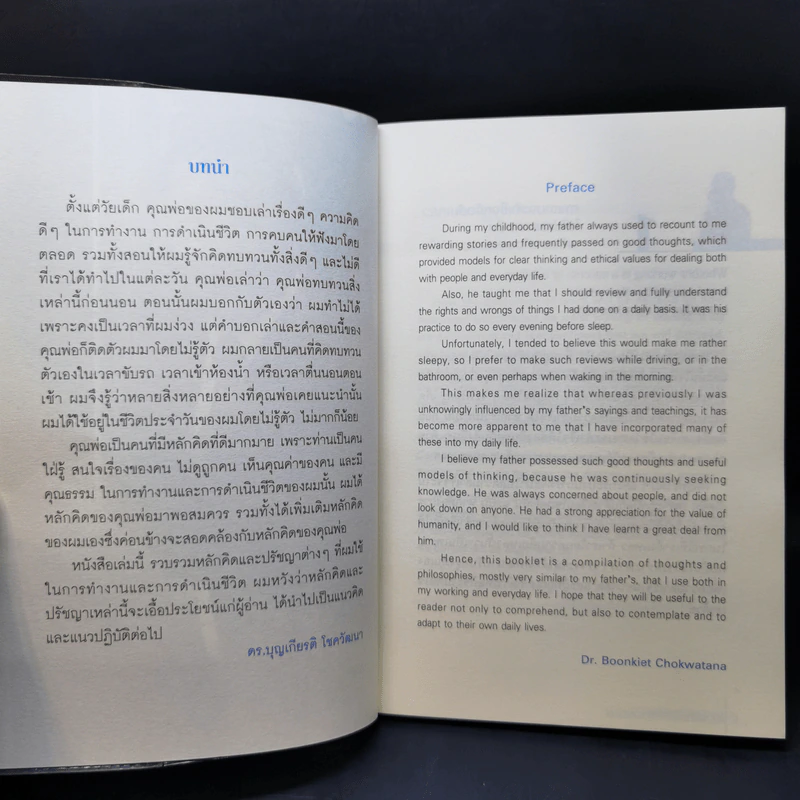 บทนำ
ตั้งแต่วัยเด็ก คุณพ่อของผมชอบเล่าเรื่องดีๆ ความคิด
ดีๆ ในการทำงาน การดำเนินชีวิต การคบคนให้ฟังมาโดย
ตลอด รวมทั้งสอนให้ผมรู้จักคิดทบทวนทั้งสิ่งดีๆ และไม่ดี
ที่เราได้ทำไปในแต่ละวัน คุณพ่อเล่าว่า คุณพ่อทบทวนสิ่ง
เหล่านี้ก่อนนอน ตอนนั้นผมบอกกับตัวเองว่า ผมทำไม่ได้
เพราะคงเป็นเวลาที่ผมง่วง แต่คำบอกเล่าและคำสอนนี้ของ
คุณพ่อก็ติดตัวผมมาโดยไม่รู้ตัว ผมกลายเป็นคนที่คิดทบทวน
ตัวเองในเวลาขับรถ เวลาเข้าห้องน้ำ หรือเวลาตื่นนอนตอน
เช้า ผมจึงรู้ว่าหลายสิ่งหลายอย่างที่คุณพ่อเคยแนะนำนั้น
ผมได้ใช้อยู่ในชีวิตประจำวันของผมโดยไม่รู้ตัว ไม่มากก็น้อย
คุณพ่อเป็นคนที่มีหลักคิดที่ดีมากมาย เพราะท่านเป็นคน
ใฝ่รู้ สนใจเรื่องของคน ไม่ดูถูกคน เห็นคุณค่าของคน และมี
คุณธรรม ในการทำงานและการดำเนินชีวิตของผมนั้น ผมได้
หลักคิดของคุณพ่อมาพอสมควร รวมทั้งได้เพิ่มเติมหลักคิด
ของผมเองซึ่งค่อนข้างจะสอดคล้องกับหลักคิดของคุณพ่อ
หนังสือเล่มนี้ รวบรวมหลักคิดและปรัชญาต่างๆ ที่ผมใช้
ในการทำงานและการดำเนินชีวิต ผมหวังว่าหลักคิดและ
ปรัชญาเหล่านี้จะเอื้อประโยชน์แก่ผู้อ่าน ได้นำไปเป็นแนวคิด
และแนวปฏิบัติต่อไป
ดร.บุญเกียรติ โชควัฒนา
Preface
During my childhood, my father always used to recount to me
rewarding stories and frequently passed on good thoughts, which
provided models for clear thinking and ethical values for dealing both
with people and everyday life.
Also, he taught me that I should review and fully understand
the rights and wrongs of things I had done on a daily basis. It was his
practice to do so every evening before sleep.
Unfortunately, I tended to believe this would make me rather
sleepy, so I prefer to make such reviews while driving, or in the
bathroom, or even perhaps when waking in the morning.
This makes me realize that whereas previously I was
unknowingly influenced by my father's sayings and teachings, it has
become more apparent to me that I have incorporated many of
these into my daily life.
I believe my father possessed such good thoughts and useful
models of thinking, because he was continuously seeking
knowledge. He was always concerned about people, and did not
look down on anyone. He had a strong appreciation for the value of
humanity, and I would like to think I have learnt a great deal from
him.
Hence, this booklet is a compilation of thoughts and
philosophies, mostly very similar to my father's, that I use both in
my working and everyday life. I hope that they will be useful to the
reader not only to comprehend, but also to contemplate and to
adapt to their own daily lives.
Dr. Boonkiet Chokwatana